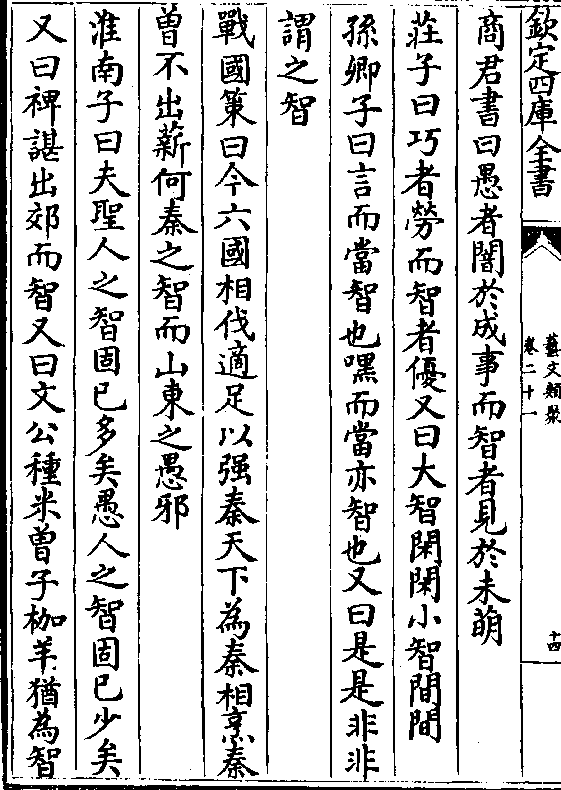 欽定四庫全書
藝文類聚
卷二十一
十四
商君書曰愚者闇於成事而智者見於未萌
莊子曰巧者勞而智者優又曰大智閑閑小智間間
孫卿子曰言而當智也嘿而當亦智也又曰是是非非
謂之智
戰國策曰今六國相伐適足以强秦天下為秦相烹秦
曾不出薪何秦之智而山東之愚邪
淮南子曰夫聖人之智固已多矣愚人之智固已少矣
又曰裨諶出郊而智又曰文公種米曾子枷羊猶為智